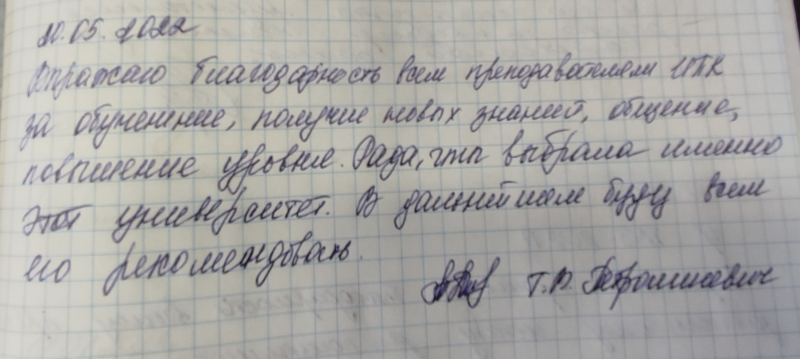 20.05.2022
Выражаю благодарность всем преподавателям ИПК
за обучение, получие новых знаний, общение,
повышение уровня. Рада, что выбрала именно
этот университет. В дальнейшем буду всем
его рекомендовать.
Т.В. Петрашкевич